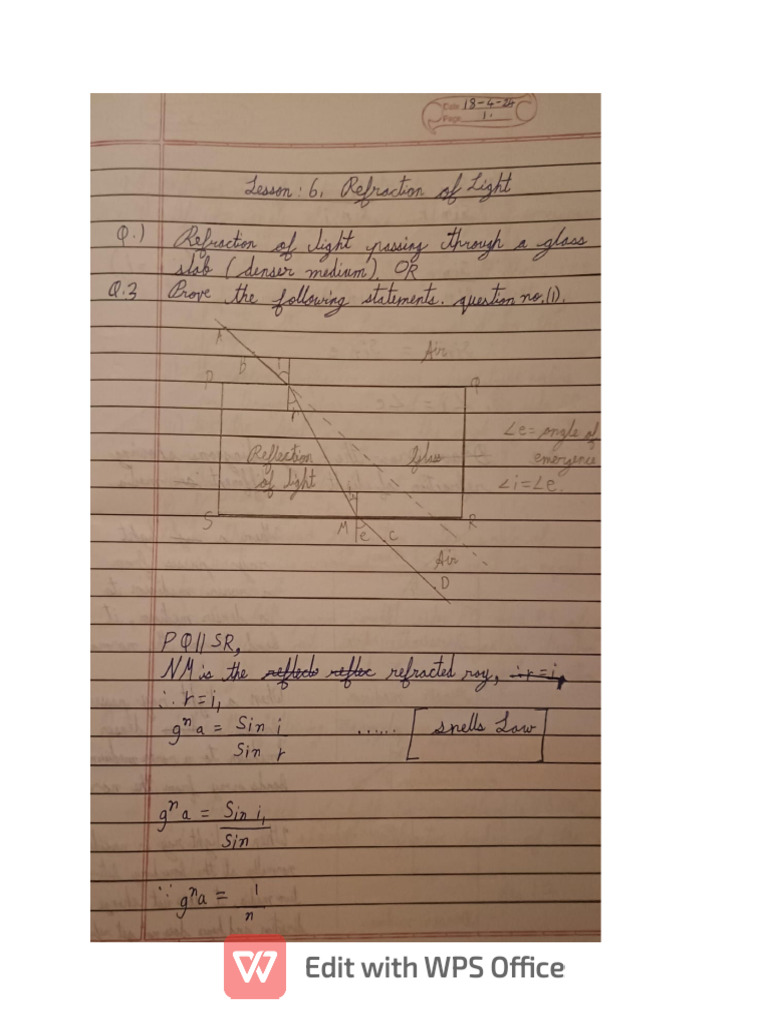 Date 18-4-24
Page 1.
Lesson: 6. Refraction of Light
Q.1) Refraction of light passing through a glass
slab (denser medium). OR
Q.3 Prove the following statements. question no.(1).
A
Air
B i
P Q
r
∠e = angle of
Reflection Glass emergence
of light ∠i = ∠e.
i₁
S M R
e C
Air
D
PQ || SR,
NM is the refracted ray,
∴ r = i₁
gⁿa = Sin i ...... [Snells Law]
Sin r
gⁿa = Sin i₁
Sin
∵ gⁿa = 1
n
Edit with WPS Office